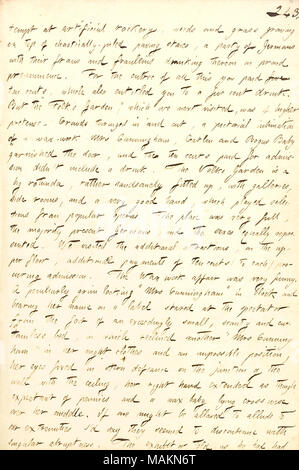 243
tempt at artificial rockery, weeds and grass growing
on top of chaotically-piled paving stones, a party of Germans
with their fraus and frauleins drinking therein in proud
preeminence. For the entree of all this you paid
ten cents, which also entitled you to a five cent drink.
But the Volk's Garden, which we next visited, was of higher
pretense. Crowds thronged in and out, a pictorial intimation
of a wax-work Mrs Cunningham, Catlin and Bogus Baby
garnished the door, and the ten cents paid for admis-
sion didn't include a drink. The Volks Garden is a
big rotunda, rather handsomely fitted up, with galleries,
side rooms, and a very good band, which played selec-
tions from popular operas. The place was very full
the majority present Germans and the sexes equally repre-
sented. We visited the additional attractions, on the up-
per floor, additional payments of ten cents to each
curing admission. The Wax work affair was very funny.
A penitently grim looking "Mrs Cunningham" in black and
bearing her name on a label stared at the spectator
from the foot of an exceedingly small, scanty and cur-
tainless bed, in which reclined another "Mrs Cunning-
ham" in her night clothes and an impossible position,
her eyes fixed in stern defiance on the junction of the
wall with the ceiling, her right hand extended as though
expectant of pennies and a wax baby lying cross wise
over her middle. If one might be allowed to allude to
her extremities I'd say they seemed to discontinue with
singular abruptness. The exhibitor told us he had had
alamy
Image ID: MAKN6T
www.alamy.com